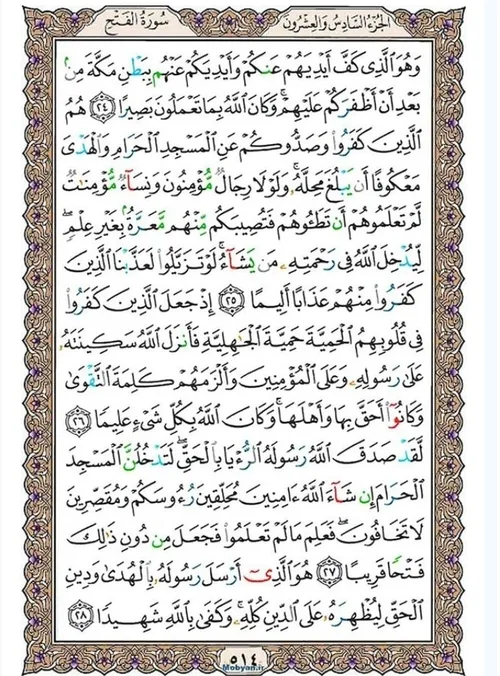 الجزء السادس والعشرون
سورة الفتح
وَهُوَ الَّذِي كَفَّ أَيْدِيَهُمْ عَنكُمْ وَأَيْدِيَكُمْ عَنْهُم بِبَطْنِ مَكَّةَ مِن
بَعْدِ أَنْ أَظْفَرَكُمْ عَلَيْهِمْ ۚ وَكَانَ اللَّهُ بِمَا تَعْمَلُونَ بَصِيرًا ٢٤ هُمُ
الَّذِينَ كَفَرُوا وَصَدُّوكُمْ عَنِ الْمَسْجِدِ الْحَرَامِ وَالْهَدْيَ
مَعْكُوفًا أَن يَبْلُغَ مَحِلَّهُ ۚ وَلَوْلَا رِجَالٌ مُّؤْمِنُونَ وَنِسَاءٌ مُّؤْمِنَاتٌ
لَّمْ تَعْلَمُوهُمْ أَن تَطَئُوهُمْ فَتُصِيبَكُم مِّنْهُم مَّعَرَّةٌ بِغَيْرِ عِلْمٍ ۖ
لِّيُدْخِلَ اللَّهُ فِي رَحْمَتِهِ مَن يَشَاءُ ۚ لَوْ تَزَيَّلُوا لَعَذَّبْنَا الَّذِينَ
كَفَرُوا مِنْهُمْ عَذَابًا أَلِيمًا ٢٥ إِذْ جَعَلَ الَّذِينَ كَفَرُوا
فِي قُلُوبِهِمُ الْحَمِيَّةَ حَمِيَّةَ الْجَاهِلِيَّةِ فَأَنزَلَ اللَّهُ سَكِينَتَهُ
عَلَىٰ رَسُولِهِ وَعَلَى الْمُؤْمِنِينَ وَأَلْزَمَهُمْ كَلِمَةَ التَّقْوَىٰ
وَكَانُوا أَحَقَّ بِهَا وَأَهْلَهَا ۚ وَكَانَ اللَّهُ بِكُلِّ شَيْءٍ عَلِيمًا ٢٦
لَّقَدْ صَدَقَ اللَّهُ رَسُولَهُ الرُّءْيَا بِالْحَقِّ ۖ لَتَدْخُلُنَّ الْمَسْجِدَ
الْحَرَامَ إِن شَاءَ اللَّهُ ءَامِنِينَ مُحَلِّقِينَ رُءُوسَكُمْ وَمُقَصِّرِينَ
لَا تَخَافُونَ ۖ فَعَلِمَ مَا لَمْ تَعْلَمُوا فَجَعَلَ مِن دُونِ ذَٰلِكَ
فَتْحًا قَرِيبًا ٢٧ هُوَ الَّذِي أَرْسَلَ رَسُولَهُ بِالْهُدَىٰ وَدِينِ
الْحَقِّ لِيُظْهِرَهُ عَلَى الدِّينِ كُلِّهِ ۚ وَكَفَىٰ بِاللَّهِ شَهِيدًا ٢٨
٥١٤
Mobyan.ir